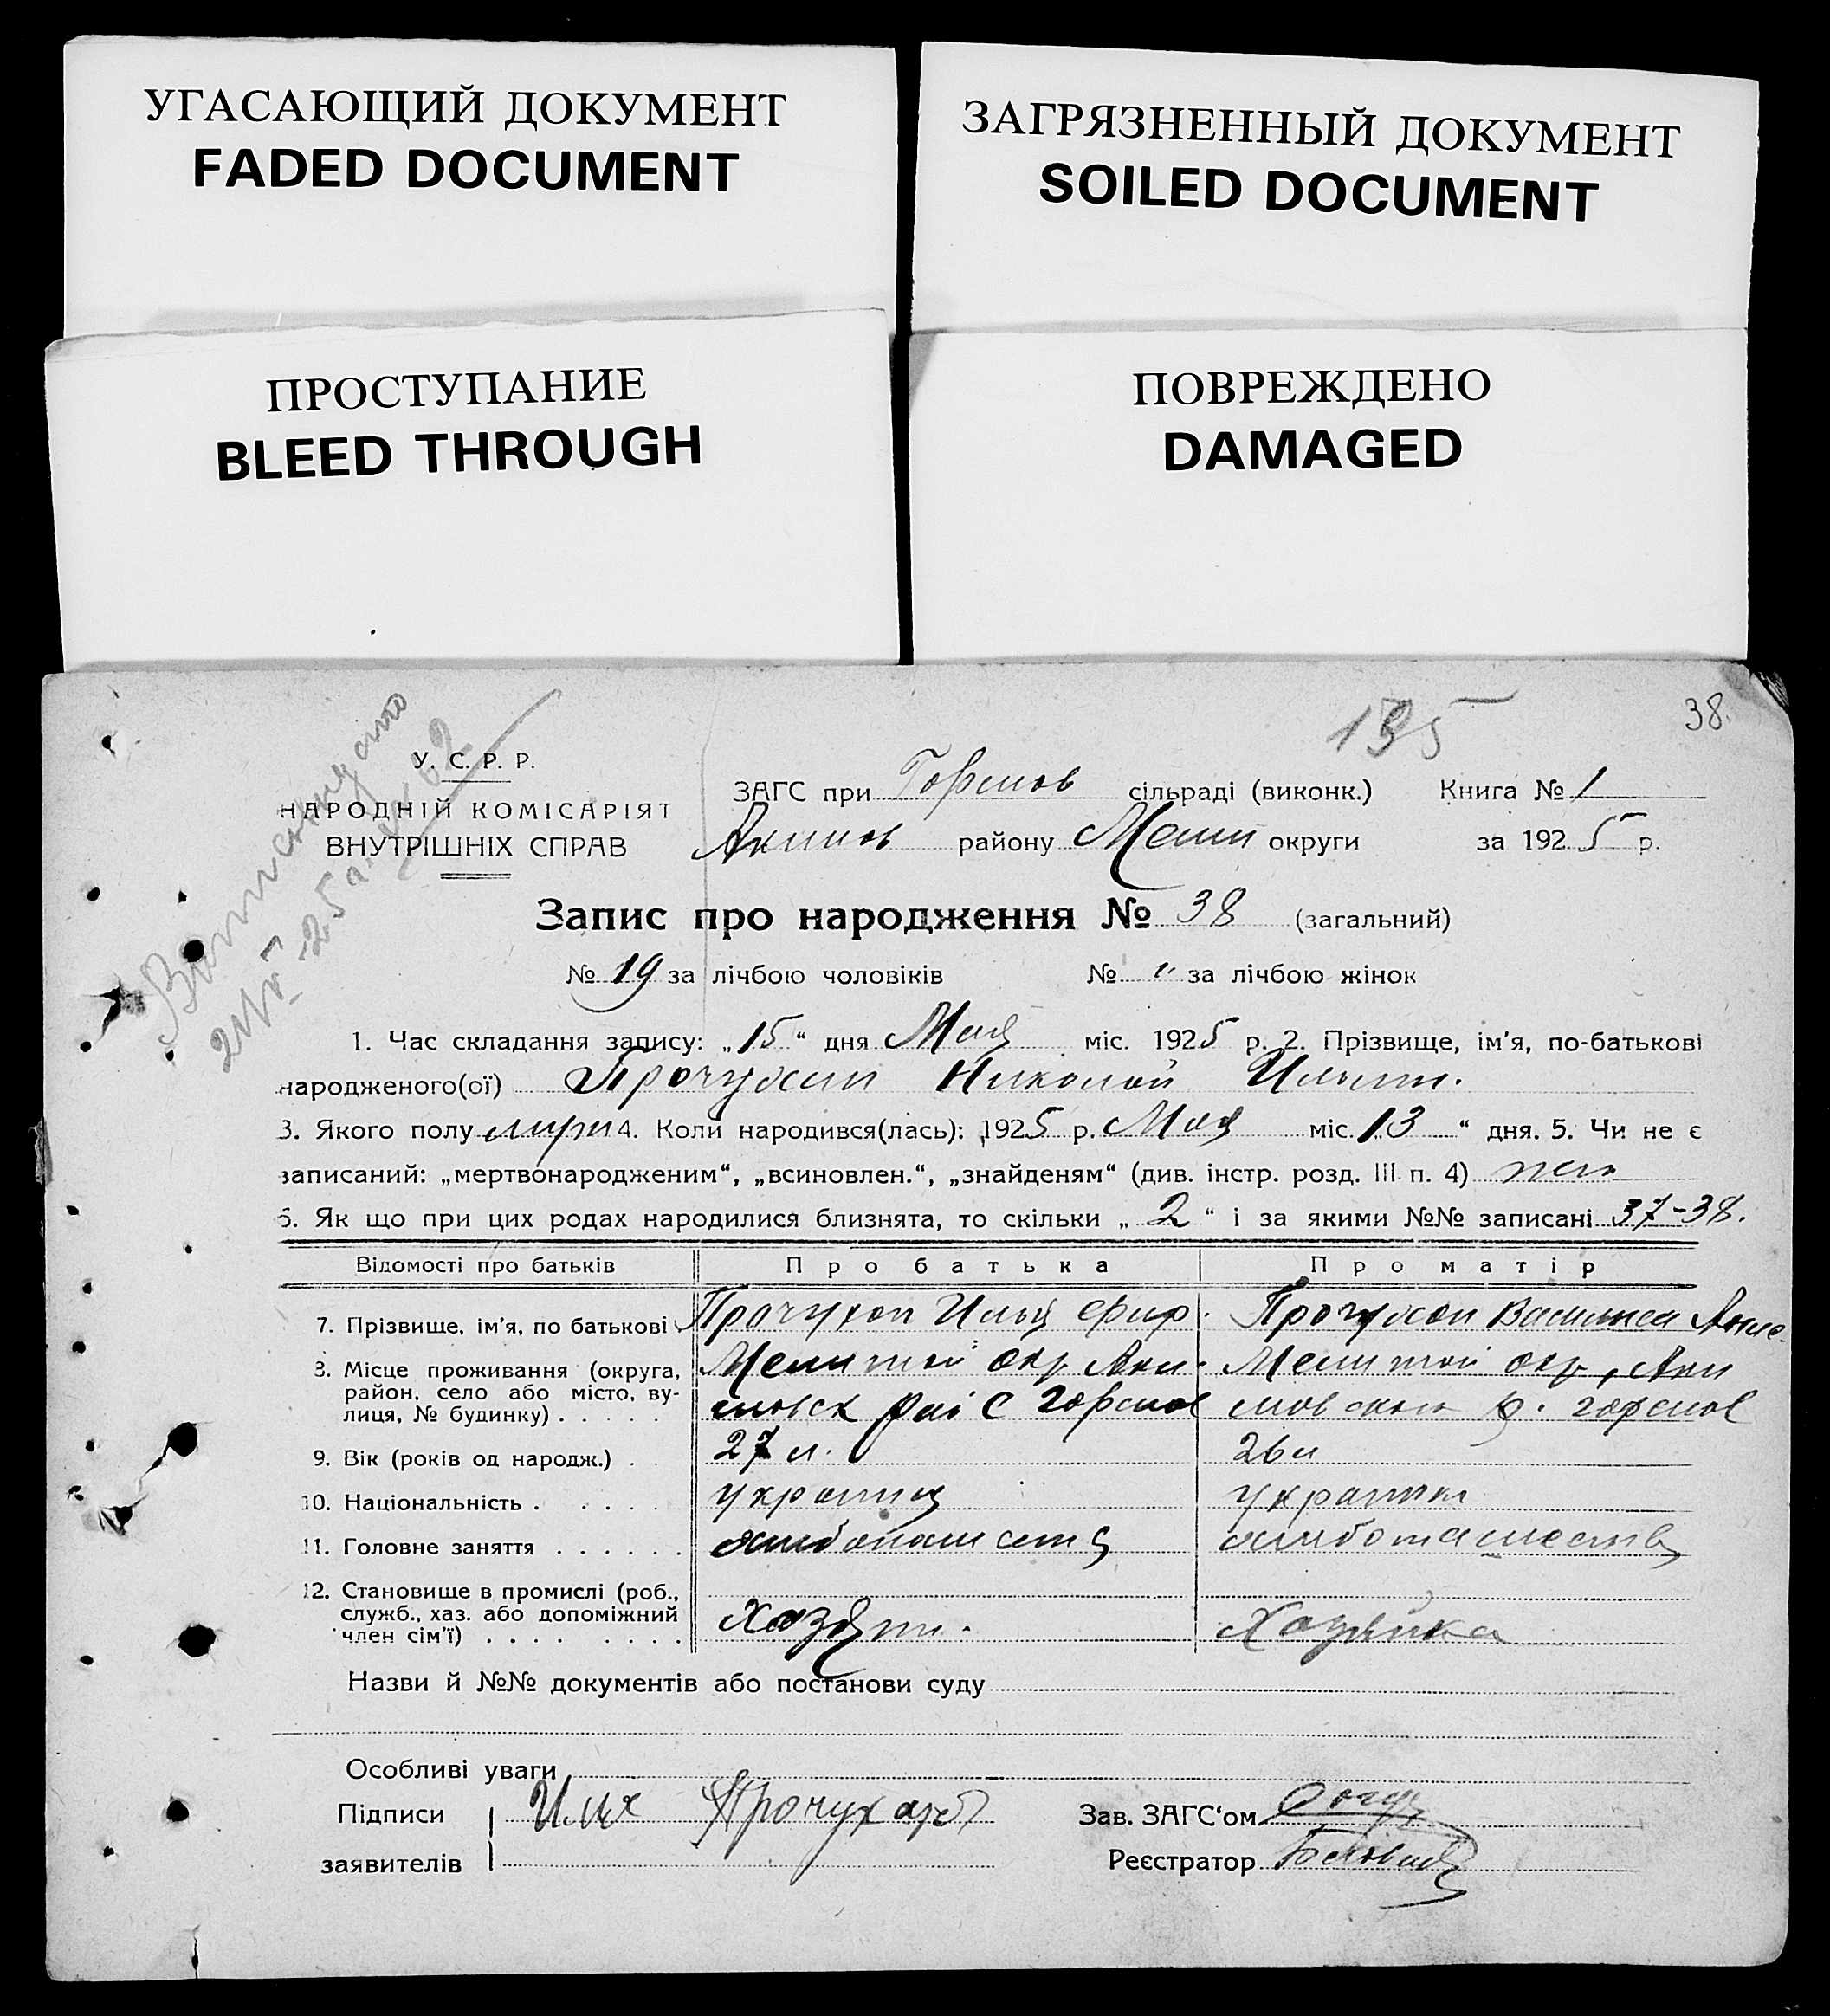 УГАСАЮЩИЙ ДОКУМЕНТ
FADED DOCUMENT
ЗАГРЯЗНЕННЫЙ ДОКУМЕНТ
SOILED DOCUMENT
ПРОСТУПАНИЕ
BLEED THROUGH
ПОВРЕЖДЕНО
DAMAGED
195
38.
У. С. Р. Р.
НАРОДНІЙ КОМІСАРІЯТ
ВНУТРІШНІХ СПРАВ
ЗАГС при сільраді (виконк.) Книга № 1
Акимов району Мелит округи за 1925 р.
Запис про народження № 38 (загальний)
№ 19 за лічбою чоловіків № " за лічбою жінок
1. Час складання запису: „15“ дня Мая міс. 1925 р. 2. Прізвище, ім'я, по-батькові
народженого(ої) Прочухан Николай Ильич.
3. Якого полу 4. Коли народився(лась): 1925 р. Мая міс. „13“ дня. 5. Чи не є
записаний: „мертвонародженим“, „всиновлен.“, „знайденям“ (див. інстр. розд. III п. 4) нет
6. Як що при цих родах народилися близнята, то скільки „2“ і за якими №№ записані 37-38.
Відомості про батьків Про батька Про матір
7. Прізвище, ім'я, по батькові Прочухан Илья Прочухан Василиса
8. Місце проживання (округа, район, село або місто, вулиця, № будинку) . . . . .
Мелитой окр Аки- Мелитой окр, Аки
мовск рай с
9. Вік (років од народж.) . 27 л. 26 л
10. Національність . . . . . украинц украинк
11. Головне заняття . . . . . . хлібопашств
12. Становище в промислі (роб.,
служб., хаз. або допоміжний
член сім'ї) . . . . . . . . Хазяин. Хазяйка
Назви й №№ документів або постанови суду
Особливі уваги
Підписи Илья Прочухан Зав. ЗАГС'ом
заявителів Реєстратор